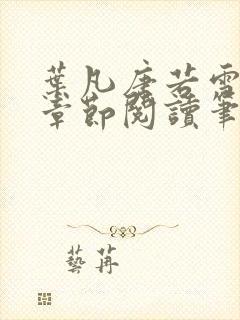 葉凡唐若雪
章節閱讀筆
藝苒